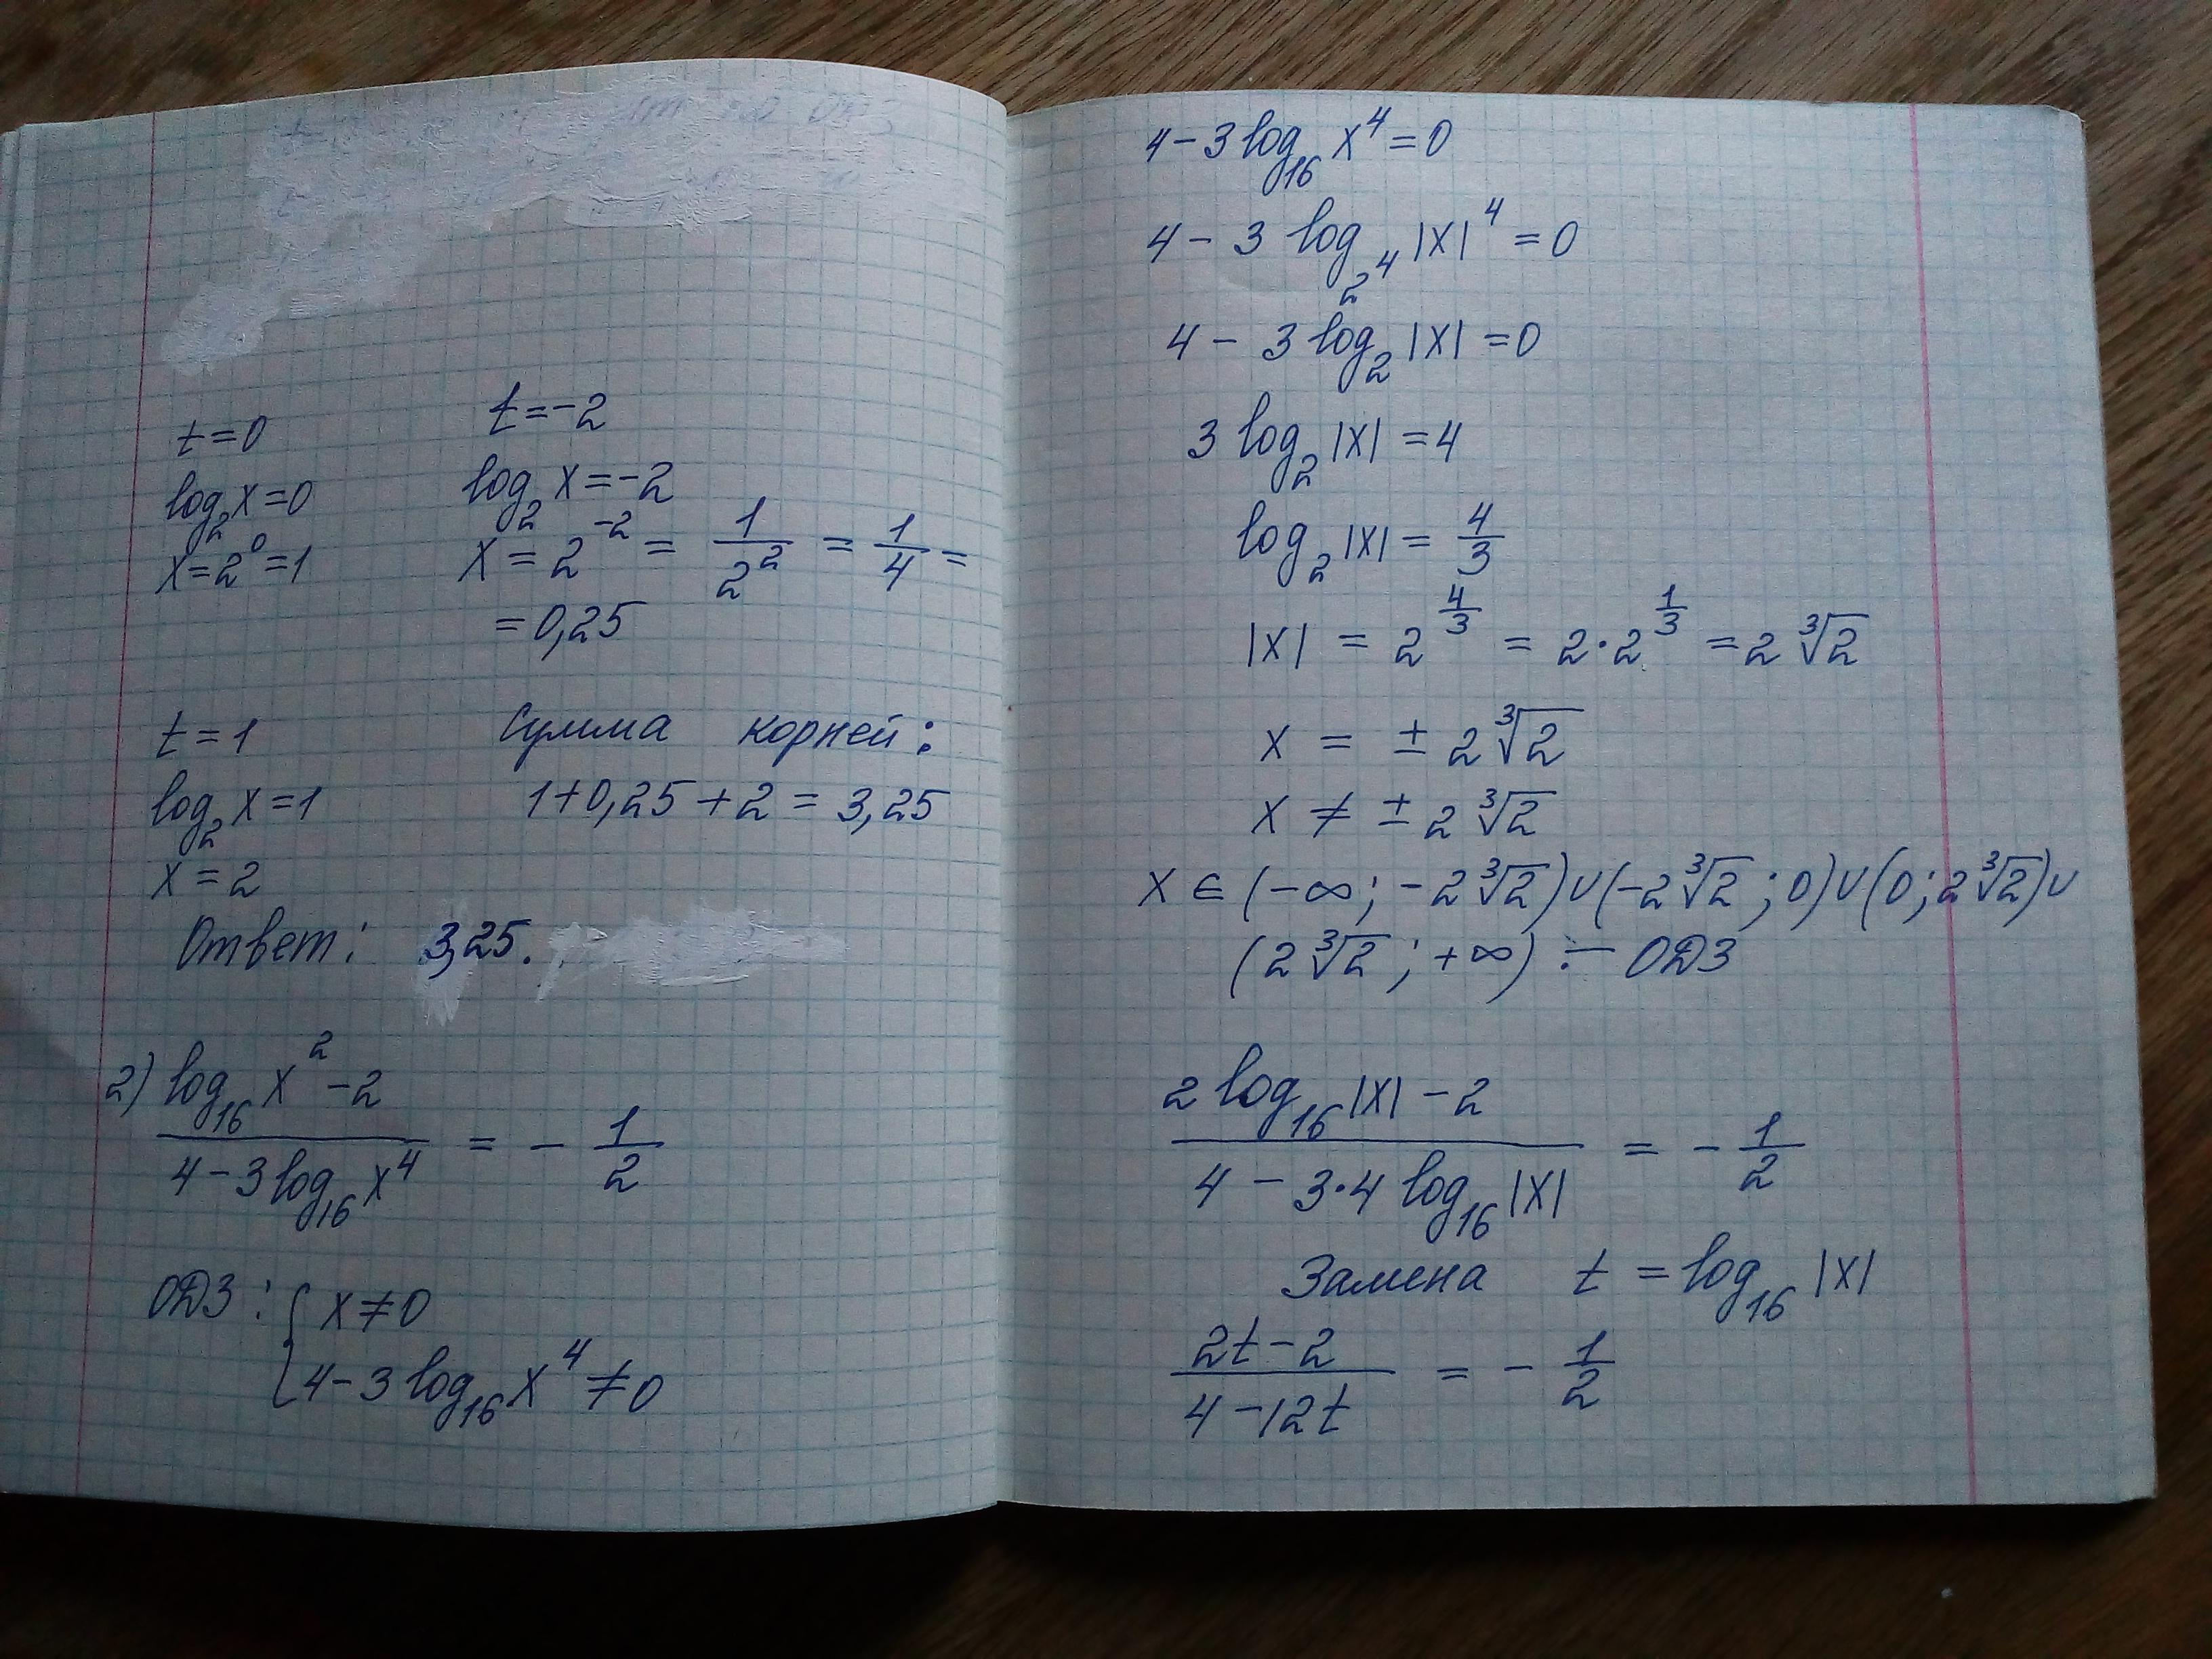 t=0
log₂x=0
x=2⁰=1
t=-2
log₂x=-2
x=2⁻²=1/2²=1/4=
=0,25
t=1
log₂x=1
x=2
Сумма корней:
1+0,25+2=3,25
Ответ: 3,25.
2) (log₁₆x²-2)/(4-3log₁₆x⁴) = -1/2
ОДЗ: { x≠0
4-3log₁₆x⁴≠0
4-3log₁₆x⁴=0
4-3log_{2⁴}|x|⁴=0
4-3log₂|x|=0
3log₂|x|=4
log₂|x|=4/3
|x|=2^{4/3}=2·2^{1/3}=2∛2
x=±2∛2
x≠±2∛2
x∈(-∞;-2∛2)∪(-2∛2;0)∪(0;2∛2)∪
(2∛2;+∞) - ОДЗ
(2log₁₆|x|-2)/(4-3·4log₁₆|x|) = -1/2
Замена t=log₁₆|x|
(2t-2)/(4-12t) = -1/2